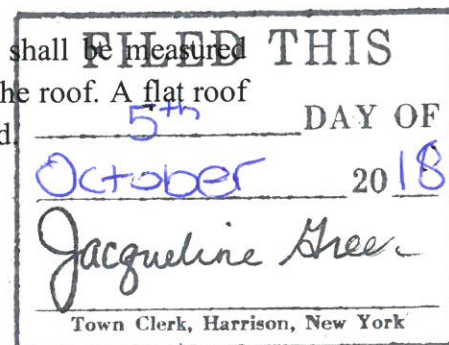 shall be measured
FILED THIS
he roof. A flat roof
d.
5th DAY OF
October 2018
Jacqueline Greer
Town Clerk, Harrison, New York